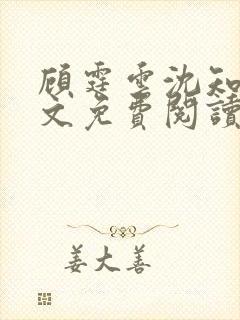 顾霆雲沈知
文免費閱讀
姜大善